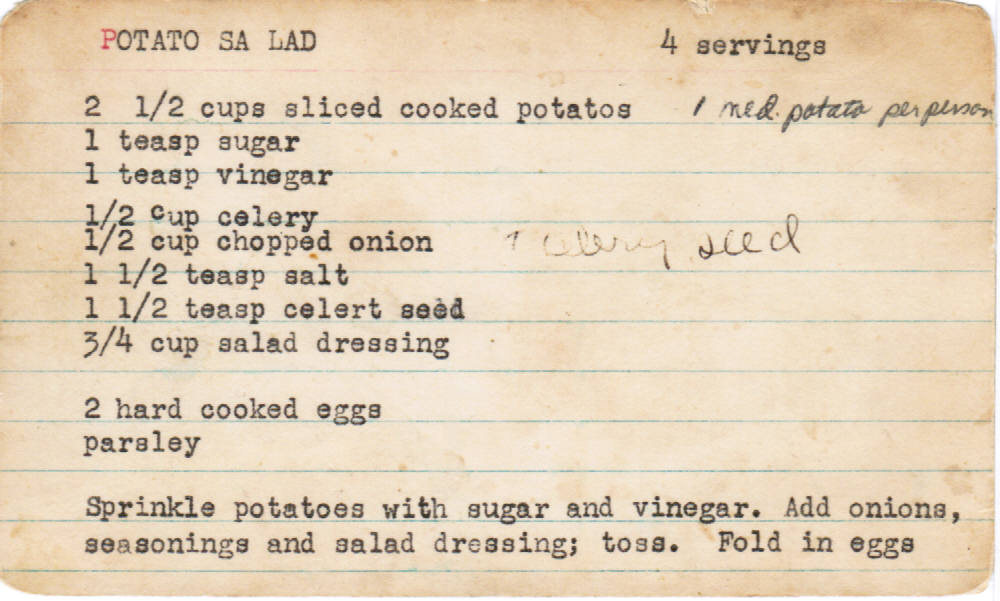 POTATO SA LAD 4 servings
2 1/2 cups sliced cooked potatos 1 med. potato per person
1 teasp sugar
1 teasp vinegar
1/2 cup celery
1/2 cup chopped onion celery seed
1 1/2 teasp salt
1 1/2 teasp celert seed
3/4 cup salad dressing
2 hard cooked eggs
parsley
Sprinkle potatoes with sugar and vinegar. Add onions,
seasonings and salad dressing; toss. Fold in eggs